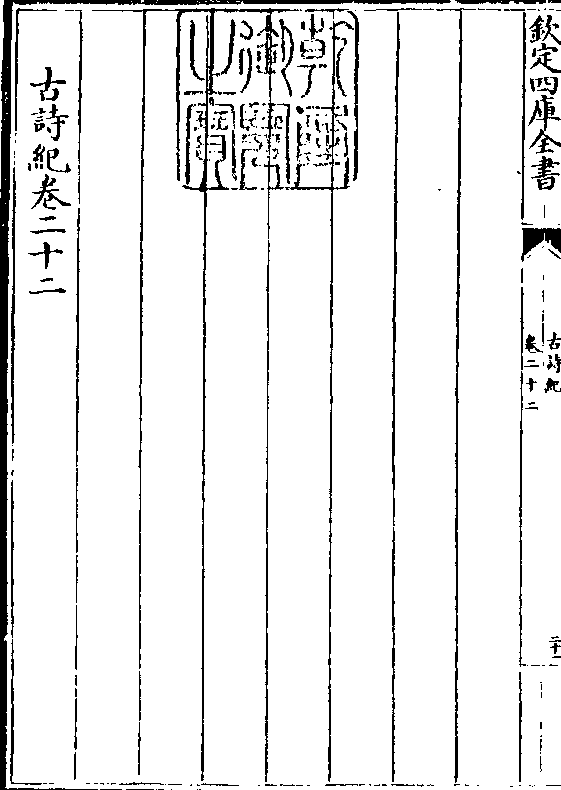 欽定四庫全書
古詩紀
卷二十二
乾隆御覽之寶
古詩紀卷二十二